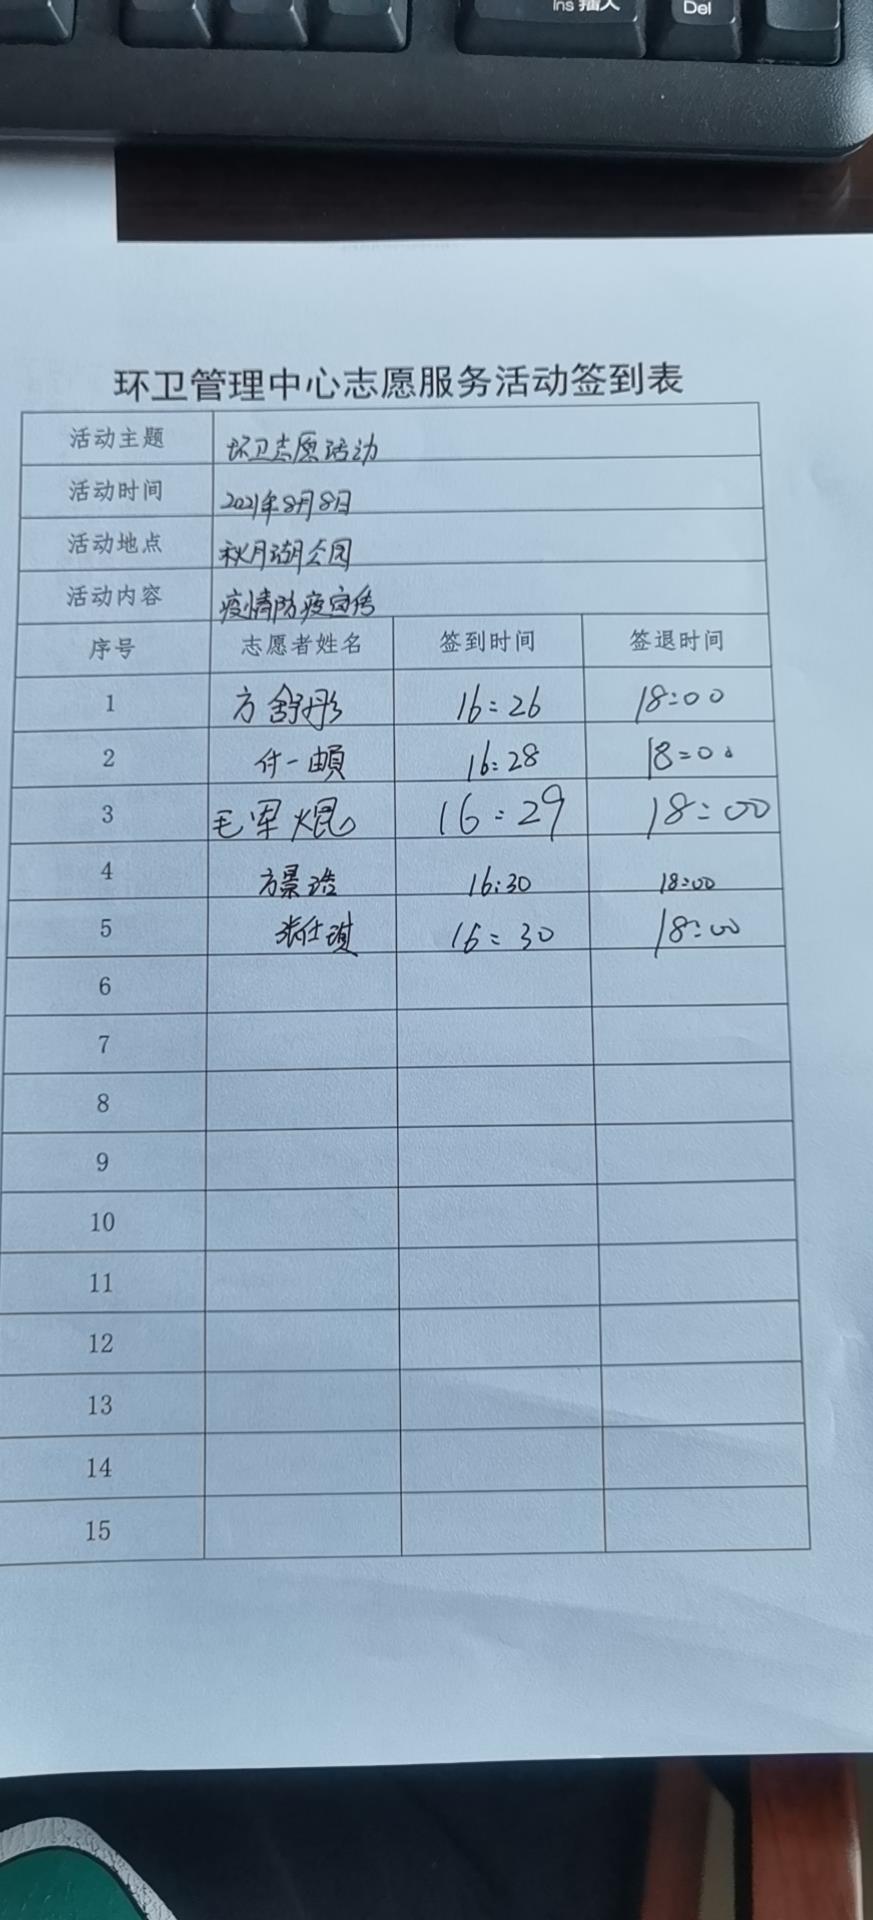 Ins 插入
Del
环卫管理中心志愿服务活动签到表
活动主题 环卫志愿活动
活动时间 2021年8月8日
活动地点 秋月湖公园
活动内容 疫情防疫宣传
序号 志愿者姓名 签到时间 签退时间
1 方舒彤 16:26 18:00
2 付一 16:28 18:00
3 毛军焜 16:29 18:00
4 方景浩 16:30 18:00
5 张仕琪 16:30 18:00
6
7
8
9
10
11
12
13
14
15